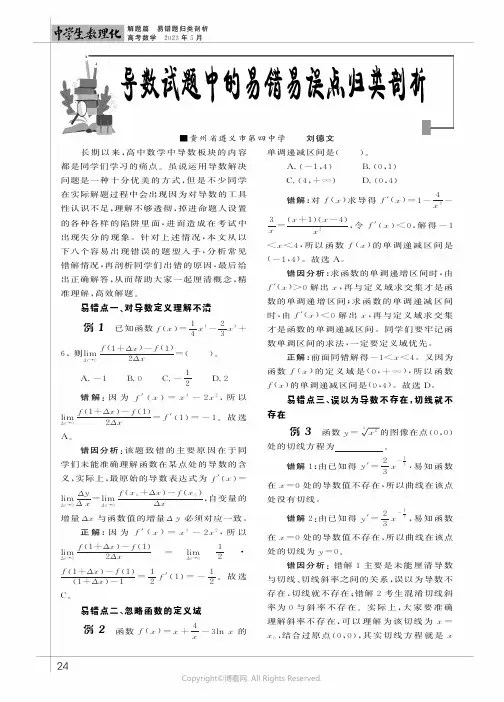 中学生数理化
解题篇 易错题归类剖析
高考数学 2023年5月
导数试题中的易错易误点归类剖析
■贵州省遵义市第四中学 刘德文
长期以来,高中数学中导数板块的内容
都是同学们学习的痛点。虽说运用导数解决
问题是一种十分优美的方式,但是不少同学
在实际解题过程中会出现因为对导数的工具
性认识不足,理解不够透彻,掉进命题人设置
的各种各样的陷阱里面,进而造成在考试中
出现失分的现象。针对上述情况,本文从以
下八个容易出现错误的题型入手,分析常见
错解情况,再剖析同学们出错的原因,最后给
出正确解答,从而帮助大家一起理清概念,精
准理解,高效解题。
易错点一、对导数定义理解不清
例1 已知函数 f(x)=1/4 x⁴-2/3 x³+
6,则lim(Δx→0) [f(1+Δx)-f(1)]/(2Δx)=( )。
A.-1 B.0 C.-1/2 D.2
错解:因为 f′(x)=x³-2x²,所以
lim(Δx→0) [f(1+Δx)-f(1)]/(2Δx)=f′(1)=-1。故选
A。
错因分析:该题致错的主要原因在于同
学们未能准确理解函数在某点处的导数的含
义,实际上,最原始的导数表达式为 f′(x)=
lim(Δx→0) Δy/Δx=lim(Δx→0) [f(x₀+Δx)-f(x₀)]/Δx,自变量的
增量Δx与函数值的增量Δy必须对应一致。
正解:因为 f′(x)=x³-2x²,所以
lim(Δx→0) [f(1+Δx)-f(1)]/(2Δx) = lim(Δx→0) 1/2 ·
[f(1+Δx)-f(1)]/[(1+Δx)-1]=1/2 f′(1)=-1/2。故选
C。
易错点二、忽略函数的定义域
例2 函数 f(x)=x+4/x-3ln x 的
单调递减区间是( )。
A.(-1,4) B.(0,1)
C.(4,+∞) D.(0,4)
错解:对 f(x)求导得 f′(x)=1-4/x²-
3/x=(x+1)(x-4)/x²,令 f′(x)<0,解得-1
<x<4,所以函数 f(x)的单调递减区间是
(-1,4)。故选A。
错因分析:求函数的单调增区间时,由
f′(x)>0解出x,再与定义域求交集才是函
数的单调递增区间;求函数的单调递减区间
时,由 f′(x)<0解出x,再与定义域求交集
才是函数的单调递减区间。同学们要牢记函
数单调区间的求法,一定要定义域优先。
正解:前面同错解得-1<x<4。又因为
函数 f(x)的定义域是(0,+∞),所以函数
f(x)的单调递减区间是(0,4)。故选D。
易错点三、误以为导数不存在,切线就不
存在
例3 函数 y=∛x²的图像在点(0,0)
处的切线方程为 。
错解1:由已知得 y′=2/3 x^(-1/3),易知函数
在x=0处的导数值不存在,所以曲线在该点
处没有切线。
错解2:由已知得 y′=2/3 x^(-1/3),易知函数
在x=0处的导数值不存在,所以曲线在该点
处的切线为y=0。
错因分析:错解1主要是未能厘清导数
与切线、切线斜率之间的关系,误以为导数不
存在,切线就不存在;错解2考生混淆切线斜
率为0与斜率不存在。实际上,大家要准确
理解斜率不存在,可以理解为该切线为x=
x₀,结合过原点(0,0),其实切线方程就是x
24
Copyright©博看网. All Rights Reserved.